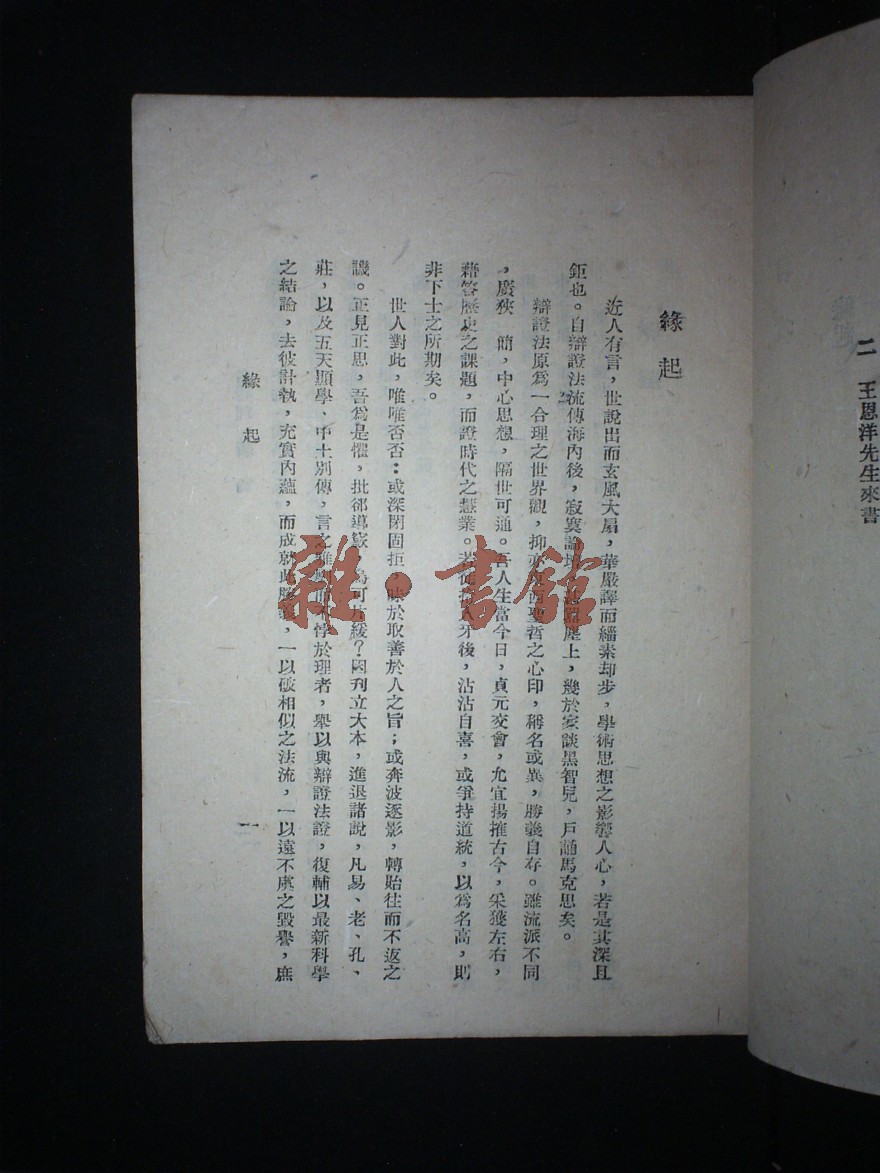 二 王恩洋先生來書
緣起
近人有言，世說出而玄風大扇，華嚴譯而緇素却步，學術思想之影響人心，若是其深且
鉅也。自辯證法流傳海內後，寂寞論壇，塵上，幾於家談黑智兒，戶誦馬克思矣。
辯證法原爲一合理之世界觀，抑亦東西聖哲之心印，稱名或異，勝義自存。雖流派不同
，廣狹 簡，中心思想，隔世可通。吾人生當今日，貞元交會，允宜揚搉古今，采獲左右，
藉答歷史之課題，而證時代之慧業。若徒拾人牙後，沾沾自喜，或爭持道統，以爲名高，則
非下士之所期矣。
世人對此，唯唯否否：或深閉固拒，昧於取善於人之旨；或奔波逐影，轉貽往而不返之
譏。正見正思，吾爲是懼，批郤導窾，烏可片緩？因刋立大本，進退諸說，凡易、老、孔、
莊，以及五天顯學、中土別傳，言之雖，而不悖於理者，舉以與辯證法證，復輔以最新科學
之結論，去彼計執，充實內蘊，而成就此勝義，一以破相似之法流，一以遠不虞之毀譽，庶
緣起
一
雜·書館